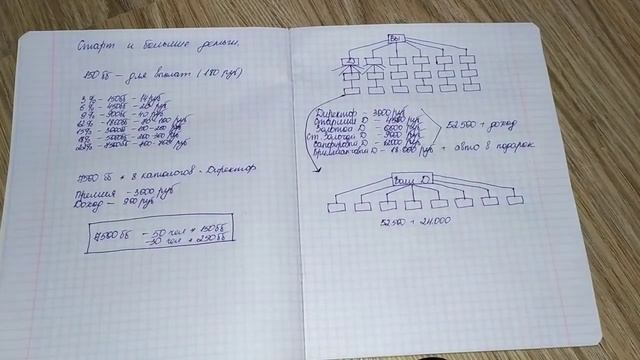 Старт и большие деньги.
150 ББ – для выплат (180 руб)
3% – 150ББ – 14 руб
6% – 450ББ – руб
9% – 900ББ – 40 руб
12% – 1800ББ – руб
15% – 3000ББ – руб
18% – 5000ББ – руб
7500ББ – руб
7500 ББ + 8 каталогов = Директор
Премия – 3000 руб
Доход – 900 руб
7500ББ – 50 чел * 150ББ
– 30 чел * 250ББ
Вы
Директор – 3000 руб
Старший D – руб
Золотой D – 6000 руб
Ст Золотой D – 9000 руб
Сапфировый D – 12000 руб
Бриллиантовый D – 18 000 руб + авто в подарок
52 500 + доход
Ваш D
52 500 + 24.000